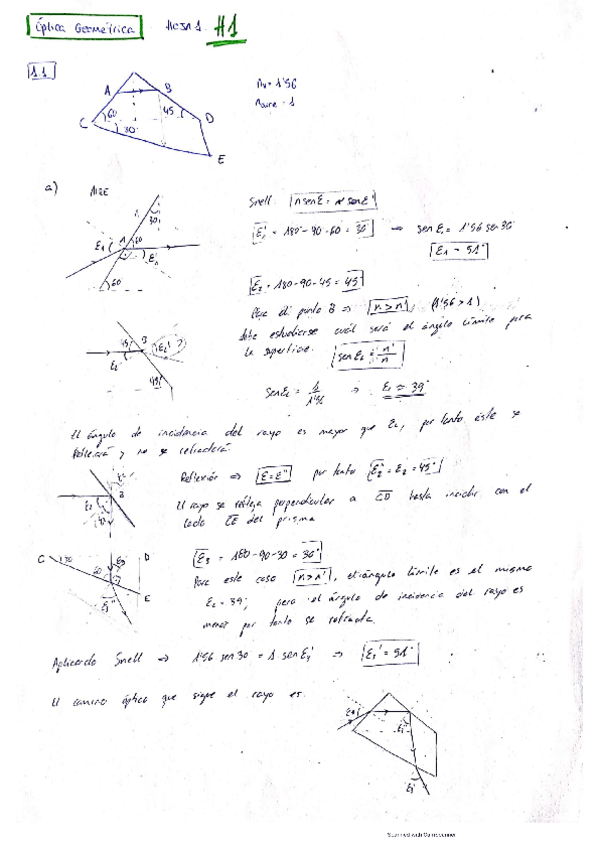 Óptica Geométrica Hoja 1. H1
1.1
A B 60 45 D C 30 E
nv = 1'56
naire = 1
a) AIRE
Snell. n senε = n' senε'
ε1' = 180 - 90 - 60 = 30° ⇒ sen ε1 = 1'56 sen 30
ε1 = 51°
ε2 = 180 - 90 - 45 = 45°
Para el punto B ⇒ n > n' (1'56 > 1)
debe estudiarse cuál será el ángulo límite para
la superficie. sen εL = n'/n
sen εL = 1/1'56 ⇒ εL ≈ 39°
El ángulo de incidencia del rayo es mayor que εL, por tanto, éste se
reflejará y no se refractará.
Reflexión ⇒ ε = ε'' por tanto ε2'' = ε2 = 45°
El rayo se refleja perpendicular a CD hasta incidir con el
lado CE del prisma
ε3 = 180 - 90 - 30 = 30°
Para este caso n > n', el ángulo límite es el mismo
εL = 39°, pero el ángulo de incidencia del rayo es
menor por tanto se refracta.
Aplicando Snell ⇒ 1'56 sen 30 = 1 sen ε1' ⇒ ε1' = 51°
El camino óptico que sigue el rayo es.
Scanned with CamScanner